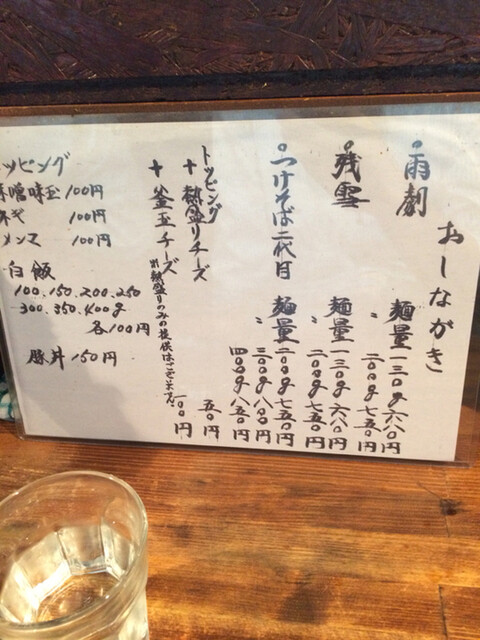 おしながき
雨劇 麺量 一三〇g 六八〇円
〃 二〇〇g 七五〇円
残雪 麺量 一三〇g 六八〇円
〃 二〇〇g 七五〇円
つけそば二代目 麺量 二〇〇g 七五〇円
〃 三〇〇g 八〇〇円
四〇〇g 八五〇円
トッピング
+ 熱盛りチーズ 五〇円
+ 釜玉チーズ 一〇〇円
※熱盛りのみの提供はございません。
ッピング
味噌味玉 100円
ネギ 100円
メンマ 100円
白飯
100.150.200.250
300.350.400g
各100円
豚丼 150円